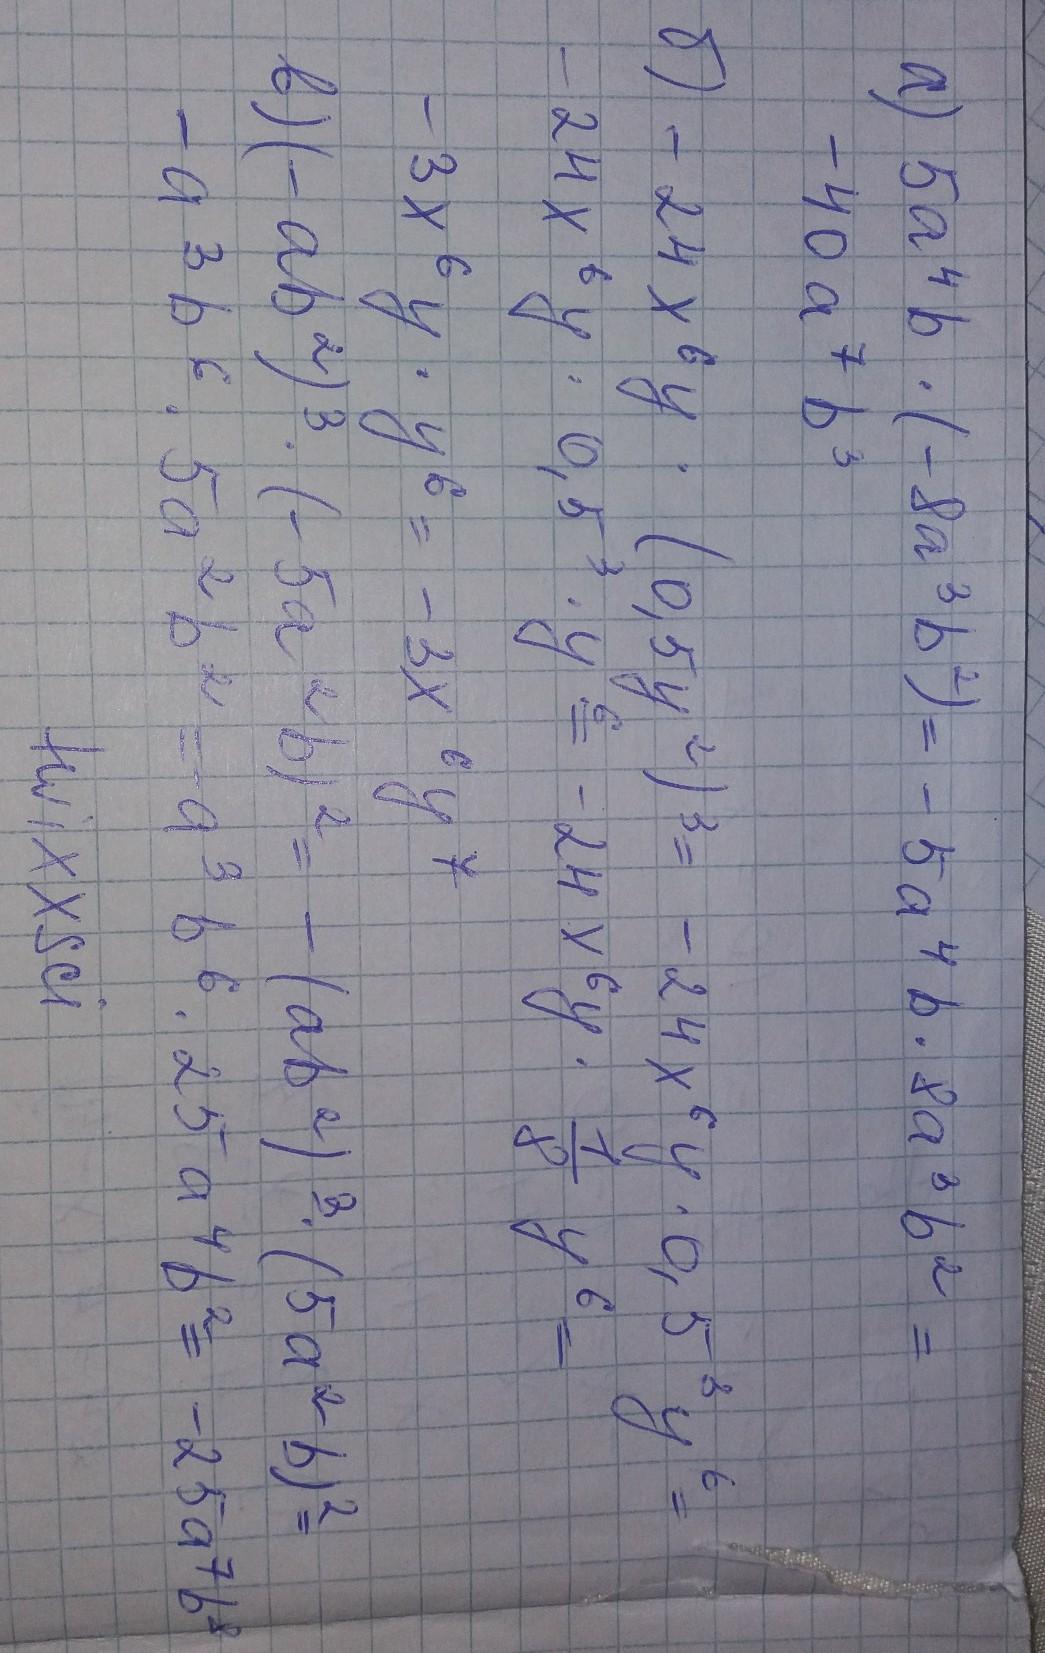 а) 5a⁴b · (-8a³b²) = -5a⁴b · 8a³b² =
-40a⁷b³
б) -24x⁶y · (0,5y²)³ = -24x⁶y · 0,5³y⁶ =
-24x⁶y · 0,5³ · y⁶ = -24x⁶y · 1/8 y⁶ =
-3x⁶y · y⁶ = -3x⁶y⁷
в) (-ab²)³ · (-5a²b)² = -(ab²)³ · (5a²b)² =
-a³b⁶ · 5a²b² = -a³b⁶ · 25a⁴b² = -25a⁷b⁸
twixxsci